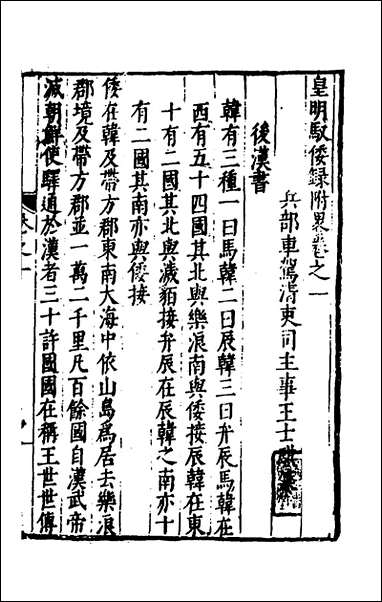 皇明馭倭録附畧卷之一
兵部車駕清吏司主事王士
後漢書
韓有三種一曰馬韓二曰辰韓三曰弁辰馬韓在
西有五十四國其北與樂浪南與倭接辰韓在東
十有二國其北與濊貊接弁辰在辰韓之南亦十
有二國其南亦與倭接
倭在韓及帶方郡東南大海中依山島爲居去樂浪
郡境及帶方郡並一萬二千里凡百餘國自漢武帝
滅朝鮮使驛通於漢者三十許國國在稱王世世傳